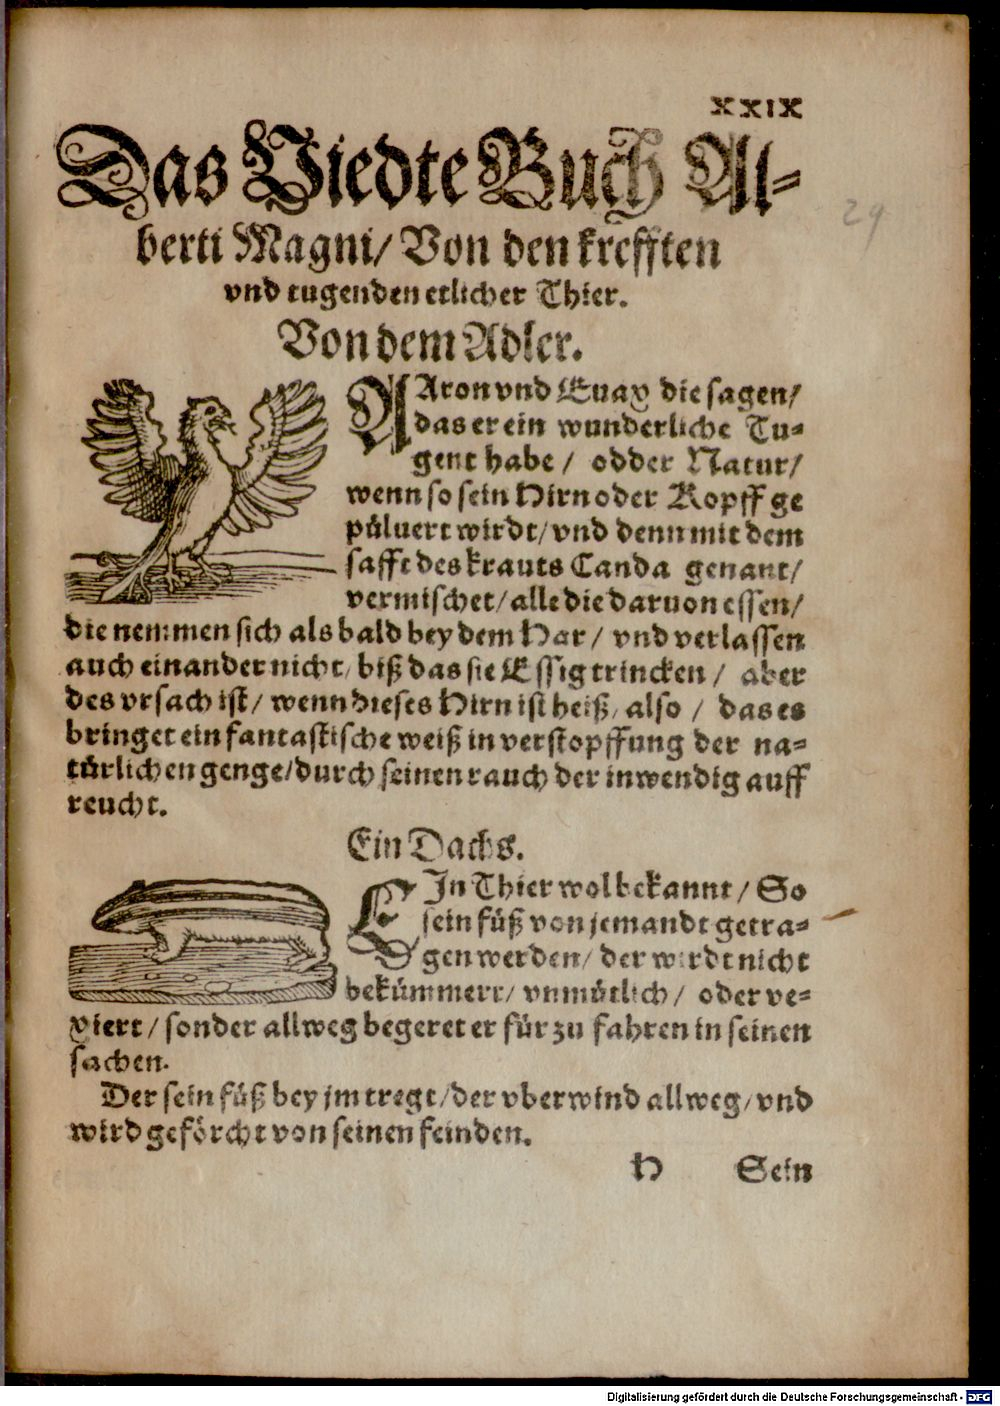 XXIX
Das Viedte Buch Al-
29
berti Magni/ Von den krefften
vnd tugenden etlicher Thier.
Von dem Adler.
AAron vnd Euax die sagen/
das er ein wunderliche Tu-
gent habe / odder Natur/
wenn so sein Hirn oder Kopff ge
pülvert wirdt/ vnd denn mit dem
safft des krauts Canda genant/
vermischet/ alle die daruon essen/
die nemmen sich als bald bey dem Har / vnd verlassen
auch einander nicht/ biß das sie Essig trincken / aber
des vrsach ist/ wenn dieses Hirn ist heiß/ also / das es
bringet ein fantastische weiß in verstopffung der na-
türlichen genge/ durch seinen rauch der inwendig auff
reucht.
Ein Dachs.
EIn Thier wolbekannt / So
sein füß von jemandt getra-
gen werden/ der wirdt nicht
bekümmert/ vnmütlich / oder ve-
xiert / sonder allweg begeret er für zu fahren in seinen
sachen.
Der sein füß bey jm tregt/ der vberwind allweg/ vnd
wird geförcht von seinen feinden.
H Sein
Digitalisierung gefördert durch die Deutsche Forschungsgemeinschaft - DFG